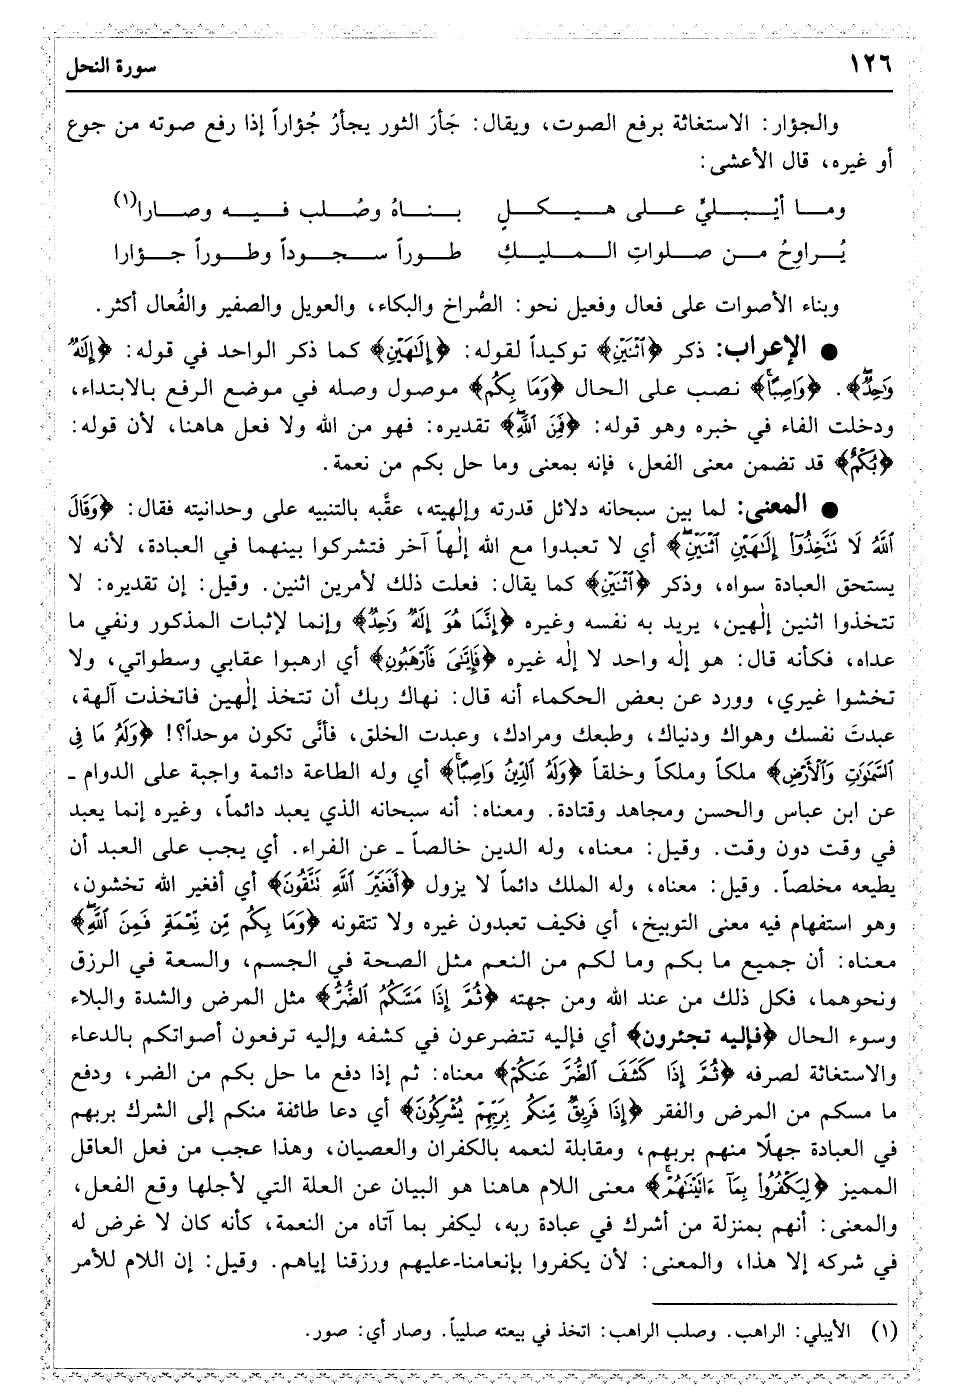 ١٢٦ سورة النحل
والجؤار: الاستغاثة برفع الصوت، ويقال: جَأرَ الثور يجأرُ جُؤاراً إذا رفع صوته من جوع
أو غيره، قال الأعشى:
ومـا أَيْـبُـلـيٌّ عـلى هـيـكـلٍ بـنـاهُ وصُـلـب فـيـه وصـارا(١)
يُـراوِحُ مـن صـلواتِ الـمـليـكِ طـوراً سـجـوداً وطـوراً جـؤارا
وبناء الأصوات على فعال وفعيل نحو: الصُّراخ والبكاء، والعويل والصفير والفُعال أكثر.
● الإعراب: ذكر ﴿ٱثْنَيْنِ﴾ توكيداً لقوله: ﴿إِلَٰهَيْنِ﴾ كما ذكر الواحد في قوله: ﴿إِلَٰهٌ
وَٰحِدٌۖ﴾. ﴿وَاصِبًاۚ﴾ نصب على الحال ﴿وَمَا بِكُم﴾ موصول وصله في موضع الرفع بالابتداء،
ودخلت الفاء في خبره وهو قوله: ﴿فَمِنَ ٱللَّهِۖ﴾ تقديره: فهو من الله ولا فعل هاهنا، لأن قوله:
﴿بِكُمْ﴾ قد تضمن معنى الفعل، فإنه بمعنى وما حل بكم من نعمة.
● المعنى: لما بين سبحانه دلائل قدرته وإلهيته، عقَّبه بالتنبيه على وحدانيته فقال: ﴿وَقَالَ
ٱللَّهُ لَا تَتَّخِذُوٓا۟ إِلَٰهَيْنِ ٱثْنَيْنِۖ﴾ أي لا تعبدوا مع الله إلٰهاً آخر فتشركوا بينهما في العبادة، لأنه لا
يستحق العبادة سواه، وذكر ﴿ٱثْنَيْنِ﴾ كما يقال: فعلت ذلك لأمرين اثنين. وقيل: إن تقديره: لا
تتخذوا اثنين إلٰهين، يريد به نفسه وغيره ﴿إِنَّمَا هُوَ إِلَٰهٌ وَٰحِدٌ﴾ وإنما لإثبات المذكور ونفي ما
عداه، فكأنه قال: هو إلٰه واحد لا إلٰه غيره ﴿فَإِيَّٰىَ فَٱرْهَبُونِ﴾ أي ارهبوا عقابي وسطواتي، ولا
تخشوا غيري، وورد عن بعض الحكماء أنه قال: نهاك ربك أن تتخذ إلٰهين فاتخذت آلهة،
عبدتَ نفسك وهواك ودنياك، وطبعك ومرادك، وعبدت الخلق، فأنَّى تكون موحداً؟! ﴿وَلَهُۥ مَا فِى
ٱلسَّمَٰوَٰتِ وَٱلْأَرْضِ﴾ ملكاً وملكاً وخلقاً ﴿وَلَهُ ٱلدِّينُ وَاصِبًاۚ﴾ أي وله الطاعة دائمة واجبة على الدوام ـ
عن ابن عباس والحسن ومجاهد وقتادة. ومعناه: أنه سبحانه الذي يعبد دائماً، وغيره إنما يعبد
في وقت دون وقت. وقيل: معناه، وله الدين خالصاً ـ عن الفراء. أي يجب على العبد أن
يطيعه مخلصاً. وقيل: معناه، وله الملك دائماً لا يزول ﴿أَفَغَيْرَ ٱللَّهِ تَتَّقُونَ﴾ أي أفغير الله تخشون،
وهو استفهام فيه معنى التوبيخ، أي فكيف تعبدون غيره ولا تتقونه ﴿وَمَا بِكُم مِّن نِّعْمَةٍ فَمِنَ ٱللَّهِۖ﴾
معناه: أن جميع ما بكم وما لكم من النعم مثل الصحة في الجسم، والسعة في الرزق
ونحوهما، فكل ذلك من عند الله ومن جهته ﴿ثُمَّ إِذَا مَسَّكُمُ ٱلضُّرُّ﴾ مثل المرض والشدة والبلاء
وسوء الحال ﴿فإليه تجئرون﴾ أي فإليه تتضرعون في كشفه وإليه ترفعون أصواتكم بالدعاء
والاستغاثة لصرفه ﴿ثُمَّ إِذَا كَشَفَ ٱلضُّرَّ عَنكُمْ﴾ معناه: ثم إذا دفع ما حل بكم من الضر، ودفع
ما مسكم من المرض والفقر ﴿إِذَا فَرِيقٌ مِّنكُم بِرَبِّهِمْ يُشْرِكُونَ﴾ أي دعا طائفة منكم إلى الشرك بربهم
في العبادة جهلًا منهم بربهم، ومقابلة لنعمه بالكفران والعصيان، وهذا عجب من فعل العاقل
المميز ﴿لِيَكْفُرُوا۟ بِمَآ ءَاتَيْنَٰهُمْۚ﴾ معنى اللام هاهنا هو البيان عن العلة التي لأجلها وقع الفعل،
والمعنى: أنهم بمنزلة من أشرك في عبادة ربه، ليكفر بما آتاه من النعمة، كأنه كان لا غرض له
في شركه إلا هذا، والمعنى: لأن يكفروا بإنعامنا-عليهم ورزقنا إياهم. وقيل: إن اللام للأمر
(١) الأيبلي: الراهب. وصلب الراهب: اتخذ في بيعته صليباً. وصار أي: صور.